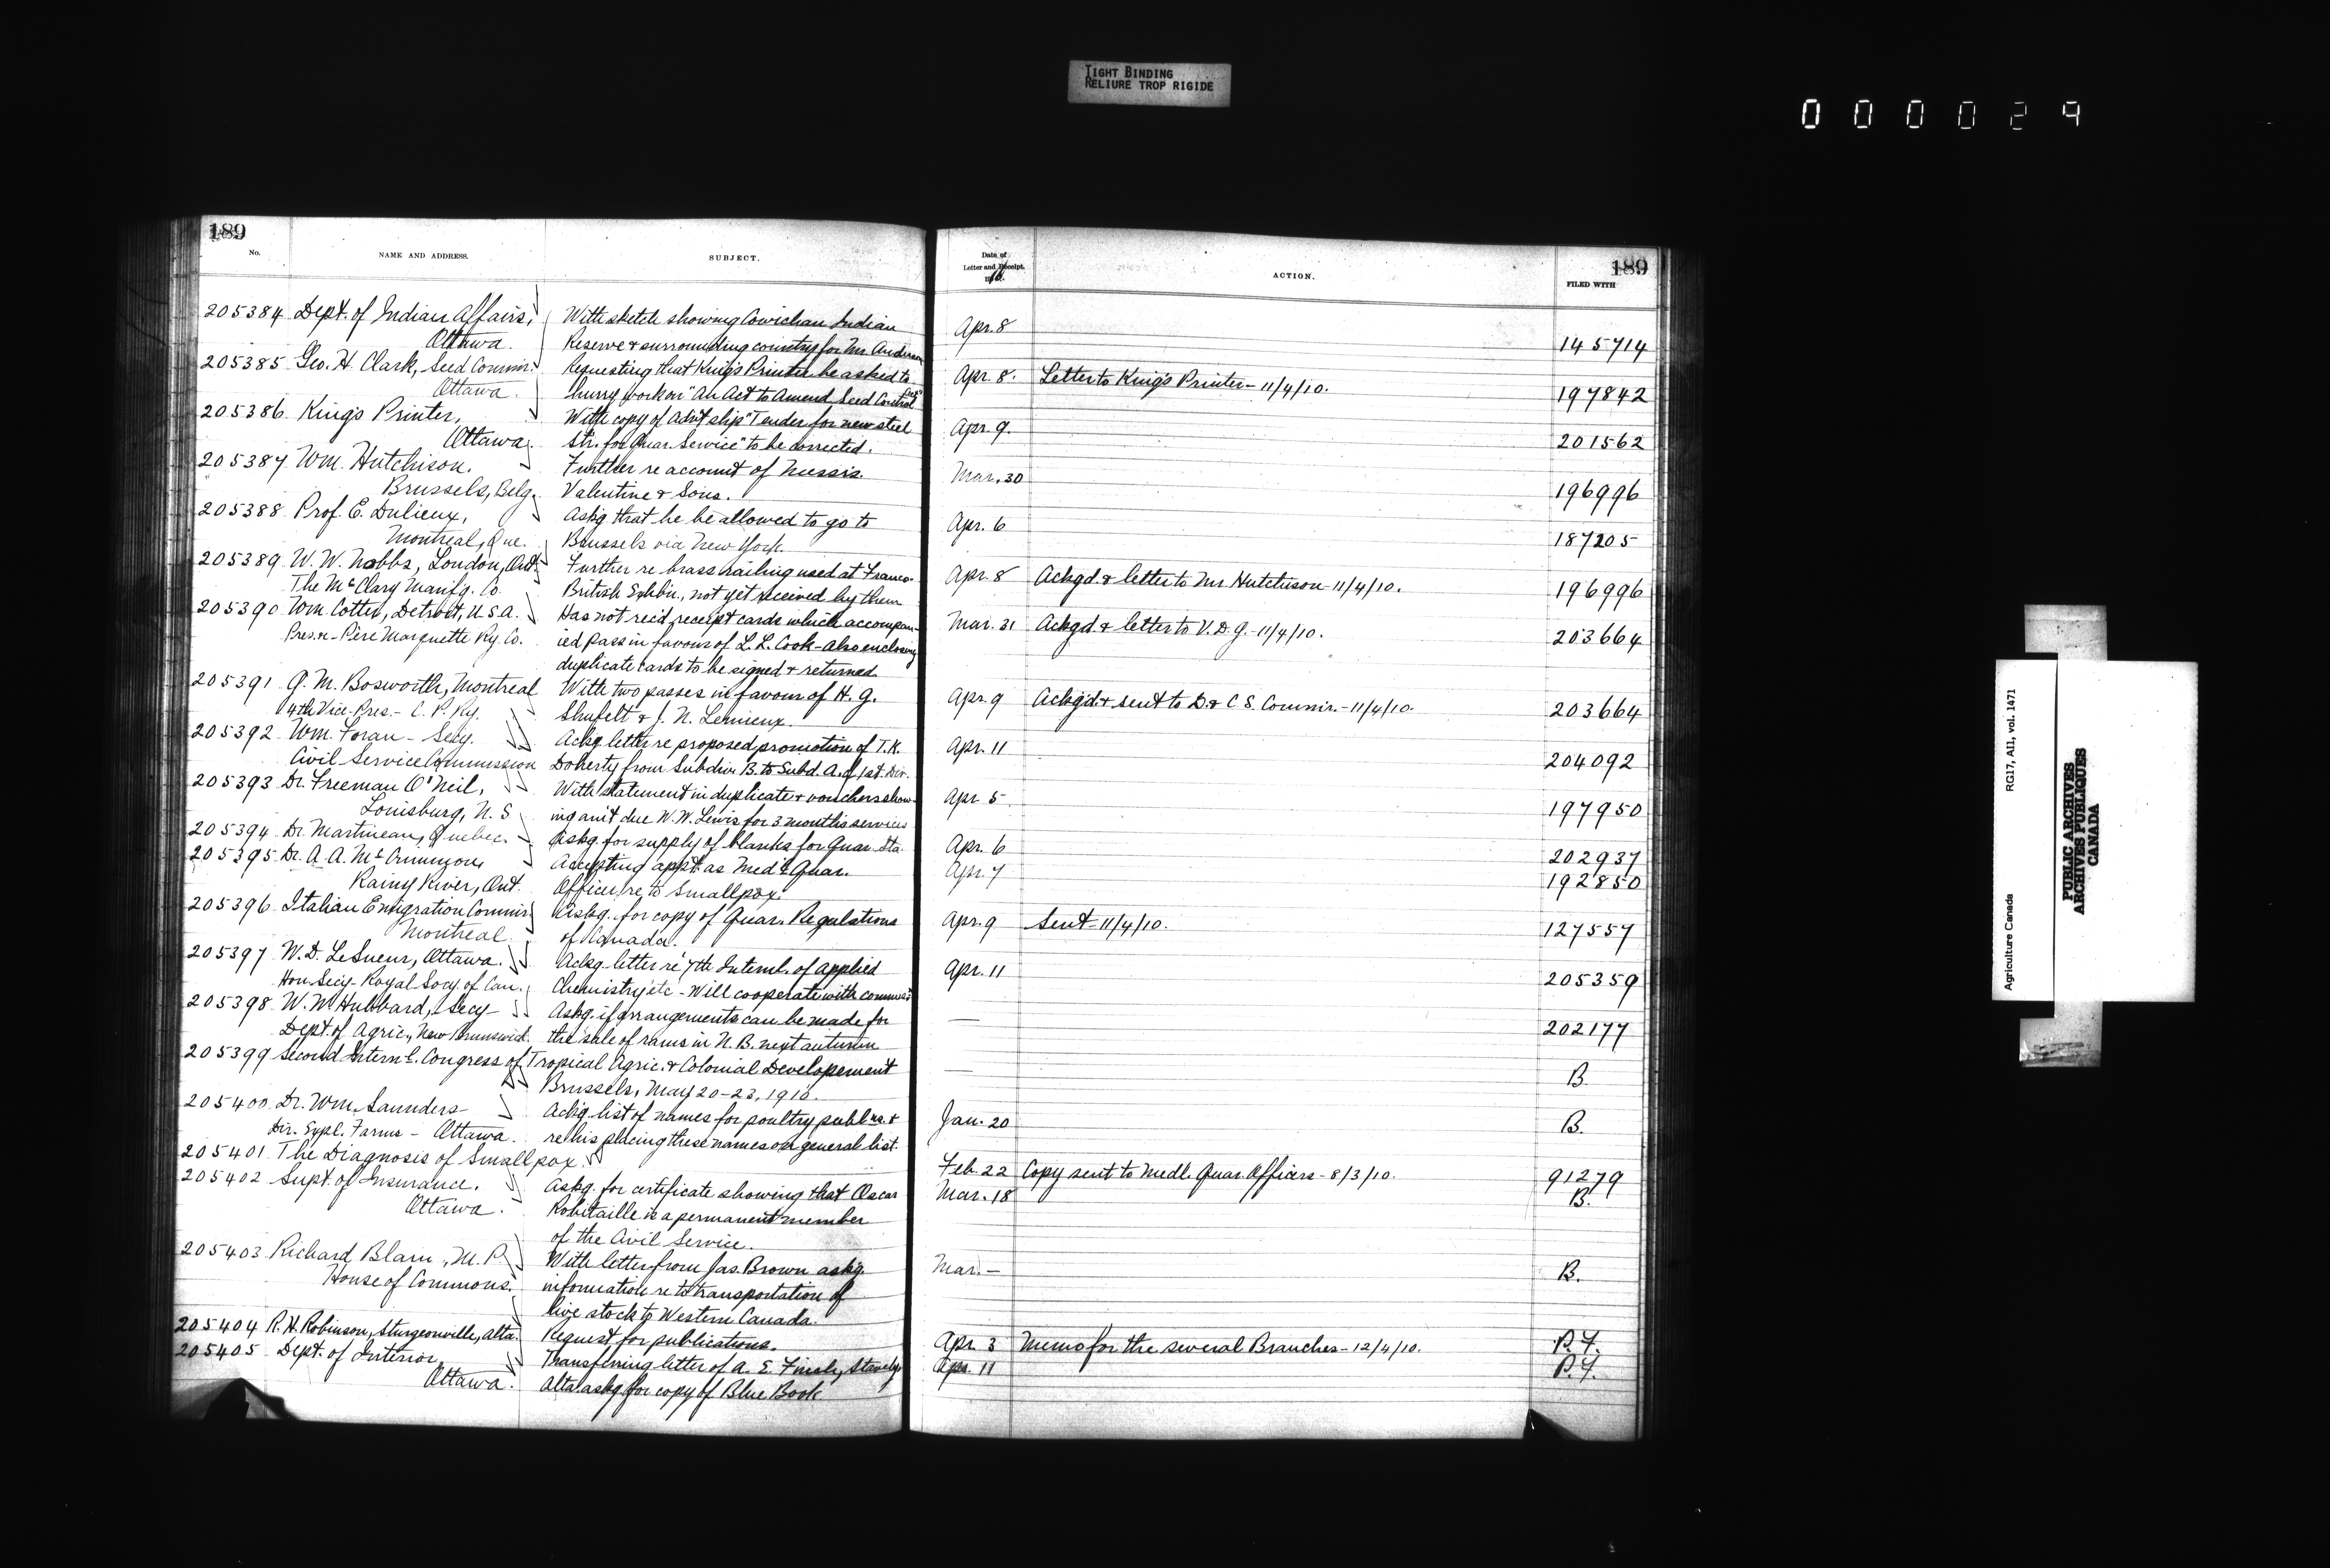 TIGHT BINDING
RELIURE TROP RIGIDE
000029
189
No. NAME AND ADDRESS. SUBJECT.
205384 Dept. of Indian Affairs, With sketch showing Cowichan Indian
Ottawa. Reserve & surrounding country for Mr. Anderson
205385 Geo. H. Clark, Seed Commr. Requesting that King's Printer be asked to
Ottawa. hurry work on "An Act to Amend Seed Control Act"
205386 King's Printer, With copy of advt slip "Tender for new steel
Ottawa. Str. for Quar. Service" to be corrected.
205387 Wm. Hutchison. Further re account of Messrs.
Brussels, Belg. Valentine & Sons.
205388 Prof. E. Dulieux, Askg that he be allowed to go to
Montreal, Que. Brussels via New York.
205389 W. W. Nobbs, London, Ont. Further re brass railing used at Franco-
The McClary Manfg. Co. British Exhbn., not yet received by them
205390 Wm. Cotter, Detroit, U.S.A. Has not rec'd receipt cards which accompan-
Pres. - Père Marquette Ry. Co. ied pass in favour of L. L. Cook - also enclosing
duplicate cards to be signed & returned
205391 G. M. Bosworth, Montreal With two passes in favour of H. G.
4th Vice-Pres. - C. P. Ry. Shufelt & J. N. Lemieux.
205392 Wm. Foran - Secy. Ackg letter re proposed promotion of T. K.
Civil Service Commission Doherty from Subdiv. B. to Subd. A. of 1st. Div.
205393 Dr. Freeman O'Neil, With statement in duplicate & vouchers show-
Louisburg, N. S. ing am't due W. W. Lewis for 3 months services
205394 Dr. Martineau, Quebec. Askg. for supply of blanks for Quar. Sta.
205395 Dr. A. A. Accepting appt. as Medl Quar.
Rainy River, Ont. Officer re to Smallpox.
205396 Italian Emigration Commr. Askg. for copy of Quar. Regulations
Montreal. of Canada.
205397 W. D. LeSueur, Ottawa. Ackg. letter re 7th Internl. of applied
Hon. Secy - Royal Socy of Can. Chemistry etc - Will cooperate with
205398 W. W. Hubbard, Secy - Askg. if arrangements can be made for
Dept. of Agric., New Brunswick. the sale of rams in N. B. next autumn
205399 Second Internl. Congress of Tropical Agric. & Colonial Developement
Brussels, May 20-23, 1910.
205400 Dr. Wm. Saunders - Ackg. list of names for poultry publns. &
Dir. Expl. Farms - Ottawa. re his placing these names on general list.
205401 The Diagnosis of Smallpox.
205402 Supt. of Insurance, Askg. for certificate showing that Oscar
Ottawa. Robitaille is a permanent member
of the Civil Service.
205403 Richard Blain, M. P. With letter from Jas. Brown askg.
House of Commons. information re to transportation of
live stock to Western Canada.
205404 R. H. Robinson, Sturgeonville, Alta. Request for publications.
205405 Dept. of Interior, Transferring letter of A. E. Stavely,
Ottawa. Alta. askg for copy of Blue Book
189
Date of Letter and Receipt. 1910. ACTION. FILED WITH
Apr. 8 145714
Apr. 8. Letter to King's Printer - 11/4/10. 197842
Apr. 9. 201562
Mar. 30 196996
Apr. 6 187205
Apr. 8 Ackgd & letter to Mr Hutchison - 11/4/10. 196996
Mar. 31 Ackgd. & letter to V. D. G. - 11/4/10. 203664
Apr. 9 Ackg'd. & sent to D. & C. S. Commr. - 11/4/10. 203664
Apr. 11 204092
Apr. 5 197950
Apr. 6 202937
Apr. 7 192850
Apr. 9 Sent - 11/4/10. 127557
Apr. 11 205359
— 202177
— B.
Jan. 20 B.
Feb. 22 Copy sent to Medl. Quar. Officers - 8/3/10. 91279
Mar. 18 B.
Mar. — B.
Apr. 3 Memo for the several Branches - 12/4/10. P.F.
Apr. 11 P.F.
Agriculture Canada RG17, AII, vol. 1471
PUBLIC ARCHIVES
ARCHIVES PUBLIQUES
CANADA